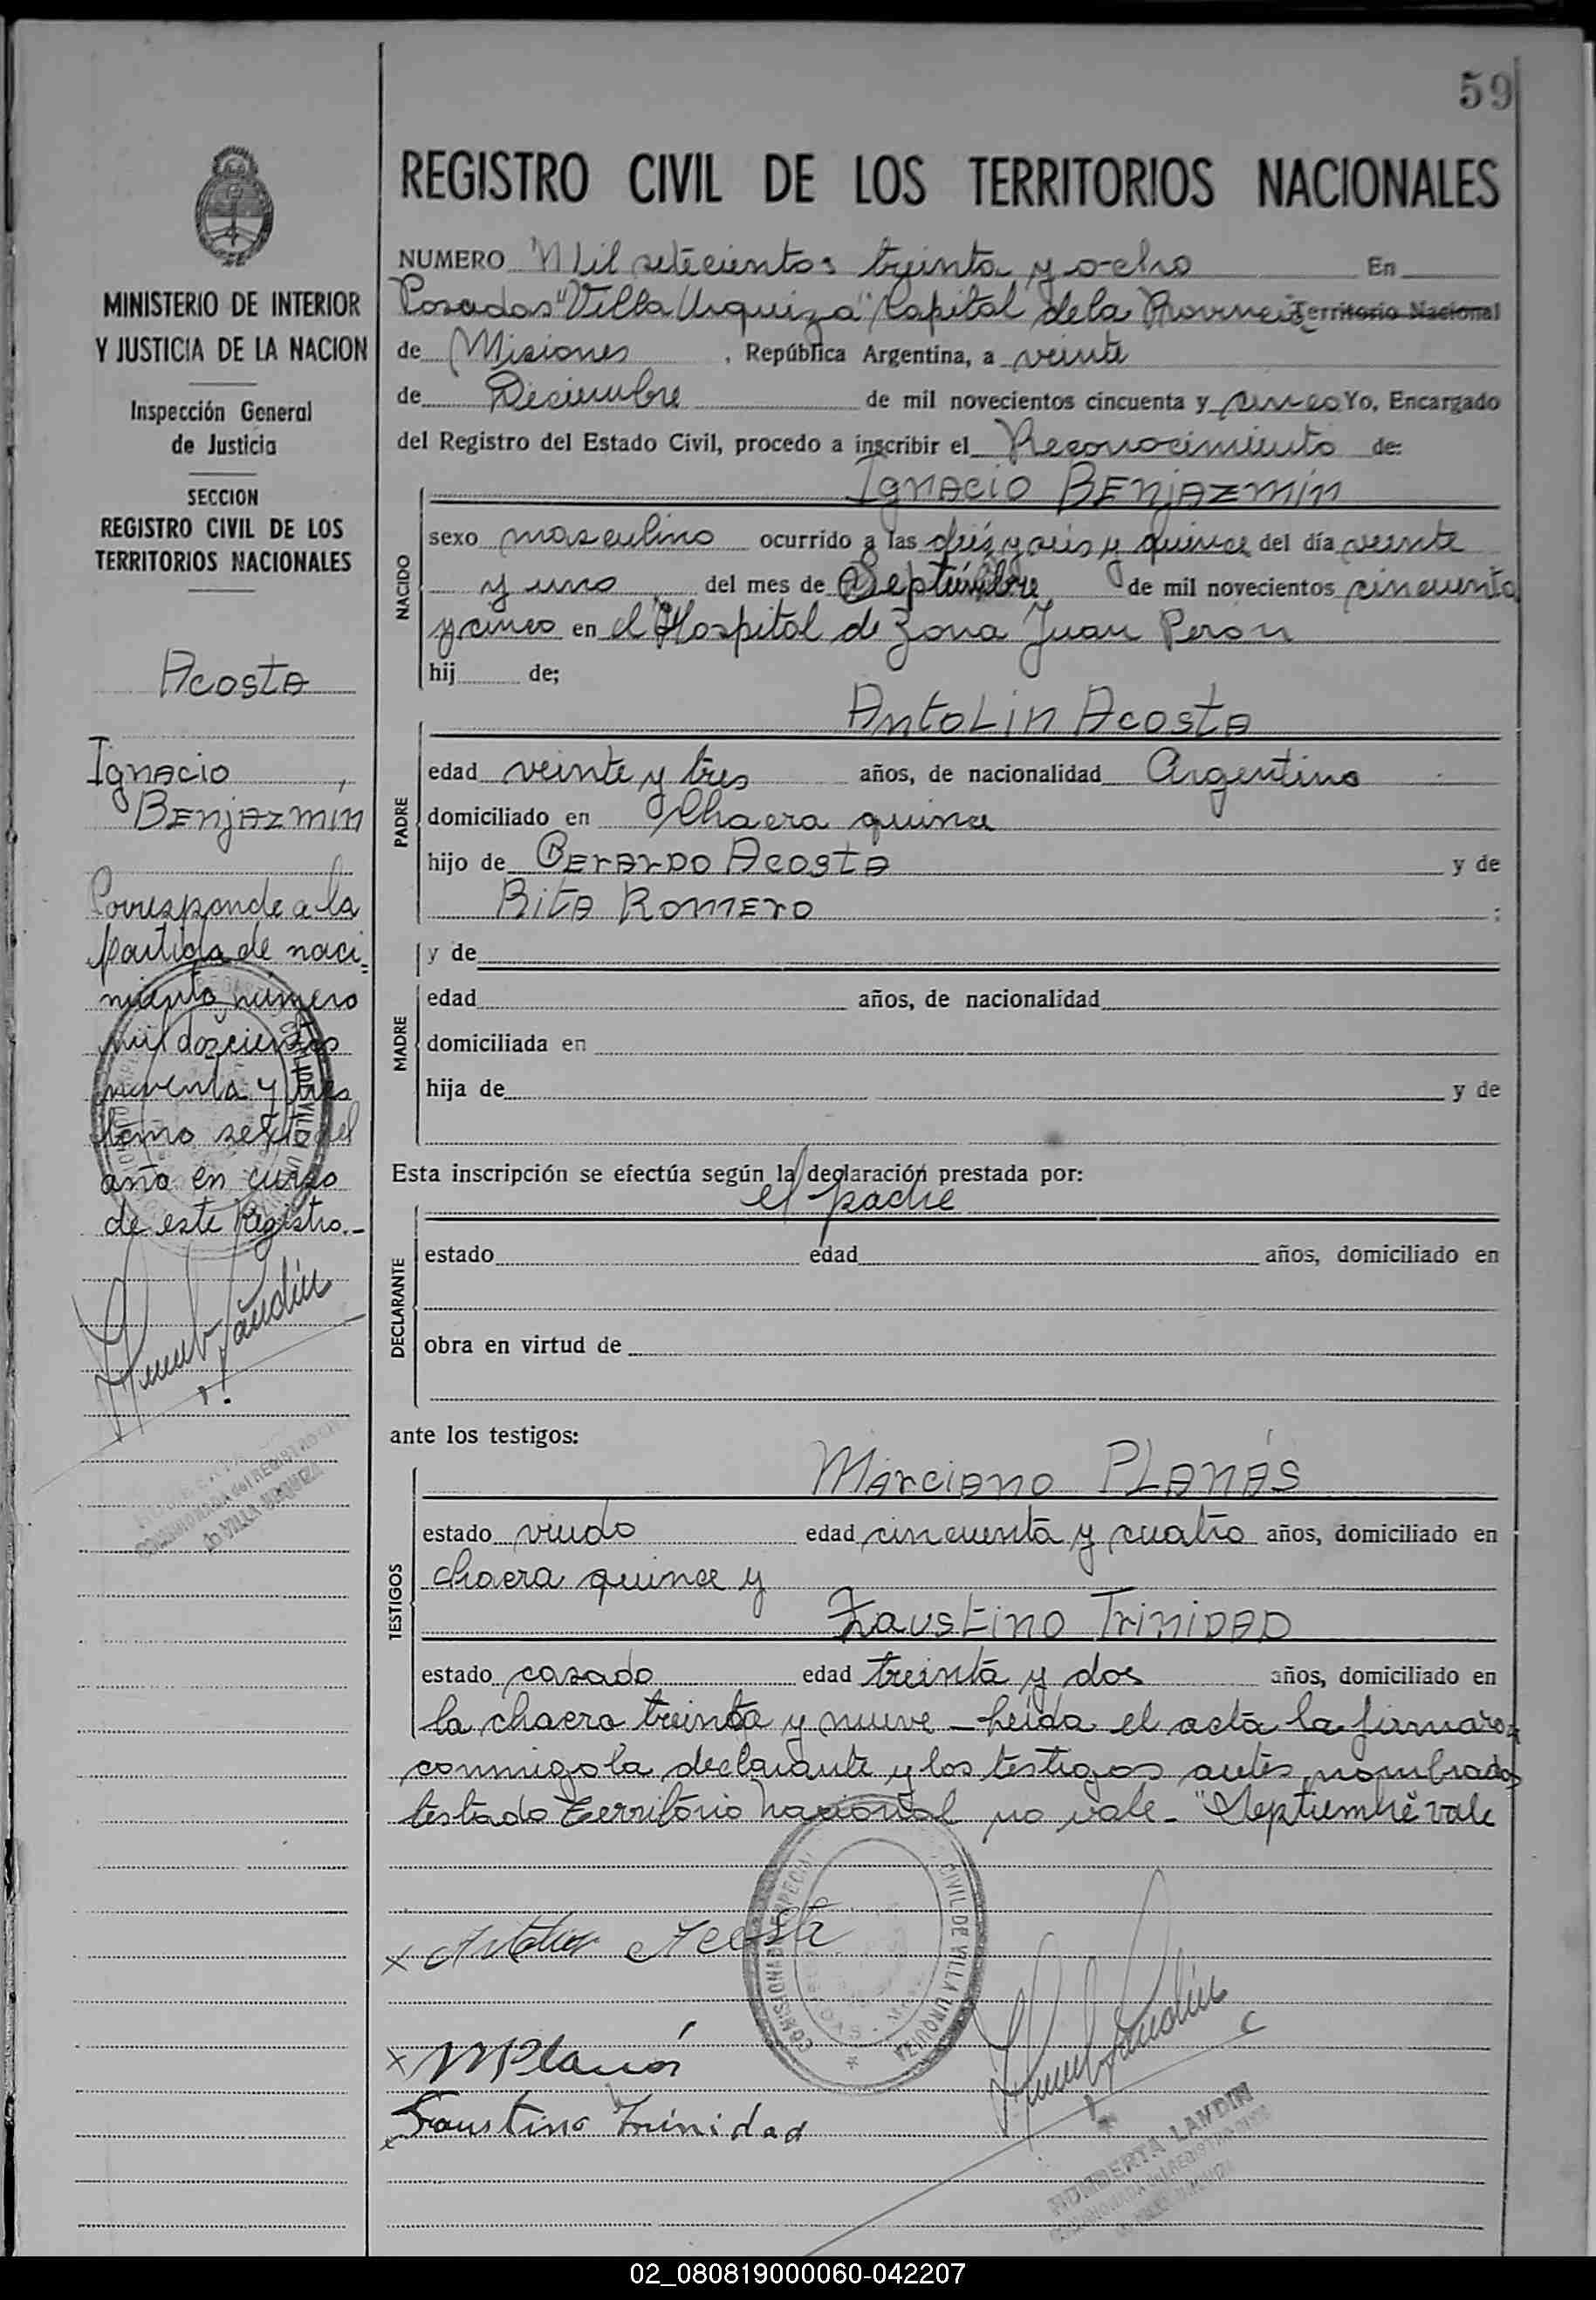 59
REGISTRO CIVIL DE LOS TERRITORIOS NACIONALES
MINISTERIO DE INTERIOR
Y JUSTICIA DE LA NACION
Inspección General
de Justicia
SECCION
REGISTRO CIVIL DE LOS
TERRITORIOS NACIONALES
Acosta
Ignacio
Benjazmín
Corresponde a la
partida de naci=
miento número
mil doscientos
noventa y tres
tomo sexto del
año en curso
de este Registro.-
NUMERO Mil setecientos treinta y ocho En
Posadas "Villa Urquiza" Capital de la Provincia Territorio Nacional
de Misiones , República Argentina, a veinte
de Diciembre de mil novecientos cincuenta y cinco Yo, Encargado
del Registro del Estado Civil, procedo a inscribir el Reconocimiento de:
Ignacio Benjazmín
NACIDO
sexo masculino ocurrido a las diés y seis y quince del día veinte
y uno del mes de Septiembre de mil novecientos cincuenta
y cinco en el Hospital de Zona Juan Peron
hij de;
Antolin Acosta
PADRE
edad veinte y tres años, de nacionalidad Argentino
domiciliado en Chacra quince
hijo de Gerardo Acosta y de
Rita Romero :
MADRE
y de
edad años, de nacionalidad
domiciliada en
hija de y de
Esta inscripción se efectúa según la declaración prestada por:
el padre
DECLARANTE
estado edad años, domiciliado en
obra en virtud de
ante los testigos:
Marciano Planás
TESTIGOS
estado viudo edad cincuenta y cuatro años, domiciliado en
chacra quince y
Faustino Trinidad
estado casado edad treinta y dos años, domiciliado en
la chacra treinta y nueve - Leída el acta la firmaron
conmigo la declarante y los testigos antes nombrados
testado Territorio Nacional no vale - "Septiembre vale
x Antolin Acosta
COMISIONADA ESPECIAL CIVIL DE VILLA URQUIZA
x MPlanás
x Faustino Trinidad
HUMBERTA LANDIN
COMISIONADA del REGISTRO CIVIL
de VILLA URQUIZA
02_080819000060-042207